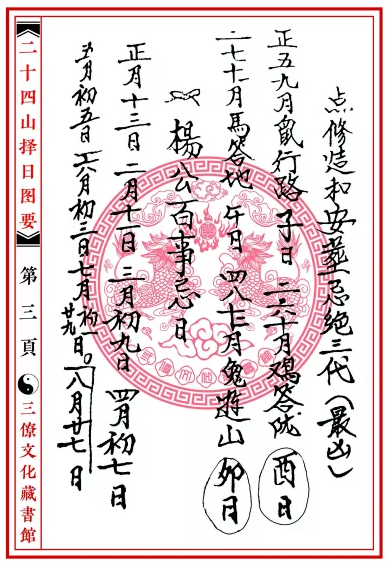 点修造和安葬忌绝三代(最凶)
正五九月鼠行路子日 二六十月鸡答陇 酉日
三七十一月馬答地 午日 四八十二月兔遊山 卯日
楊公百事忌日
正月十三日 二月十一日 三月初九日 四月初七日
五月初五日 六月初三日 七月初一廿九日。八月廿七日
【二十四山择日图要】 第三頁 三僚文化藏書館